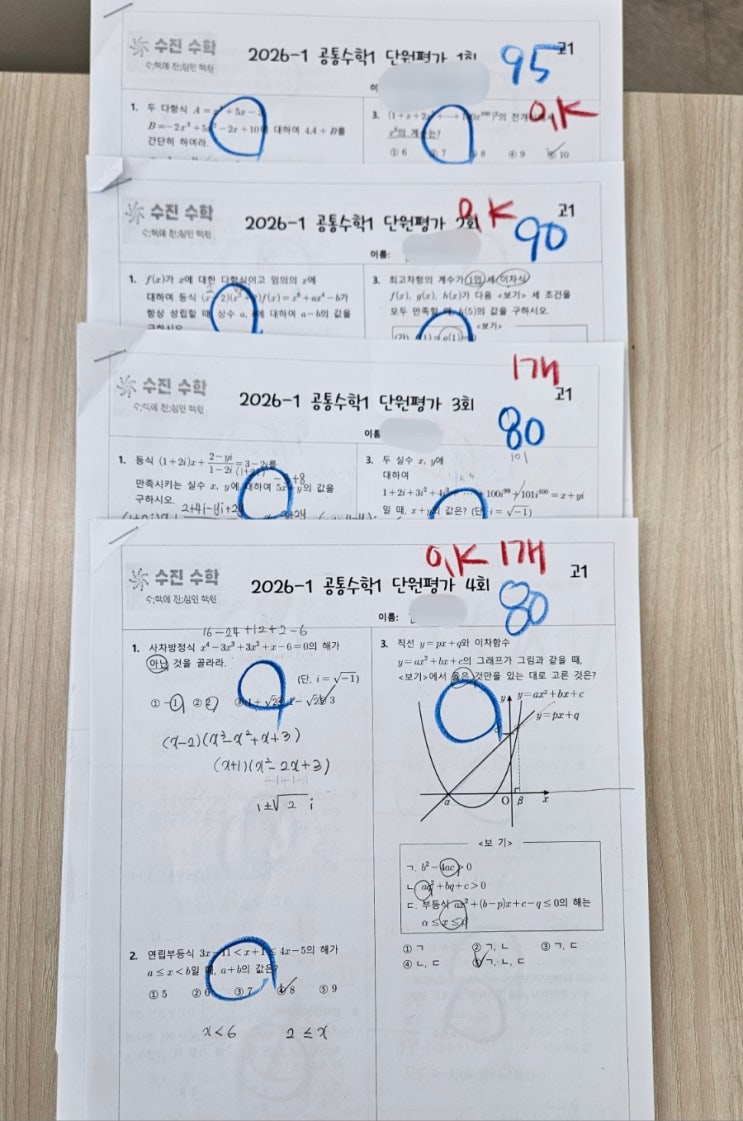 수진 수학
수학에 진심인 학원
2026-1 공통수학1 단원평가 1회
95
고1
O.K
1. 두 다항식 A =
+ 5x -
B = -2x³ + 5x² - 2x + 10에 대하여 4A + B를
간단히 하여라.
3. (1+x+2x²+⋯+100x¹⁰⁰)²의 전개식에서
x³의 계수는?
① 6 ② 7 ③ 8 ④ 9 ⑤ 10
수진 수학
수학에 진심인 학원
2026-1 공통수학1 단원평가 2회
O.K
90
고1
이름:
1. f(x)가 x에 대한 다항식이고 임의의 x에
대하여 등식
f(x) = x⁶ + ax⁴ - b가
항상 성립할 때 상수 a, b에 대하여 a-b의 값을
구하시오.
3. 최고차항의 계수가 1인 세 이차식
f(x), g(x), h(x)가 다음 <보기> 세 조건을
모두 만족할 때, h(5)의 값을 구하시오.
<보기>
수진 수학
수학에 진심인 학원
2026-1 공통수학1 단원평가 3회
1개
고1
80
이름
1. 등식 (1+2i)x + (2-yi)/(1-2i) = 3-2i를
만족시키는 실수 x, y에 대하여 5x+y의 값을
구하시오.
3. 두 실수 x, y에
대하여
1+2i+3i²+4i³
100i⁹⁹+101i¹⁰⁰ = x+yi
일 때, x+y의 값은? (단, i = √-1)
수진 수학
수학에 진심인 학원
2026-1 공통수학1 단원평가 4회
O.K 1개
80
고1
이름:
16-24+12+2-6
1. 사차방정식 x⁴-3x³+3x²+x-6=0의 해가
아닌 것을 골라라.
(단, i = √-1)
① -1 ② 2
(x-2)(x³-x²+x+3)
(x+1)(x²-2x+3)
1±√2 i
2. 연립부등식 3x-11 < x+1 ≤ 4x-5의 해가
a ≤ x < b일 때, a+b의 값은?
① 5 ② 6 ③ 7 ④ 8 ⑤ 9
x<6 2≤x
3. 직선 y=px+q와 이차함수
y=ax²+bx+c의 그래프가 그림과 같을 때,
<보기>에서 옳은 것만을 있는 대로 고른 것은?
y y=ax²+bx+c
y=px+q
α O β x
<보 기>
ㄱ. b²-4ac>0
ㄴ. aq²+bq+c>0
ㄷ. 부등식 ax²+(b-p)x+c-q≤0의 해는
α≤x≤β
① ㄱ ② ㄱ, ㄴ ③ ㄱ, ㄷ
④ ㄴ, ㄷ ⑤ ㄱ, ㄴ, ㄷ